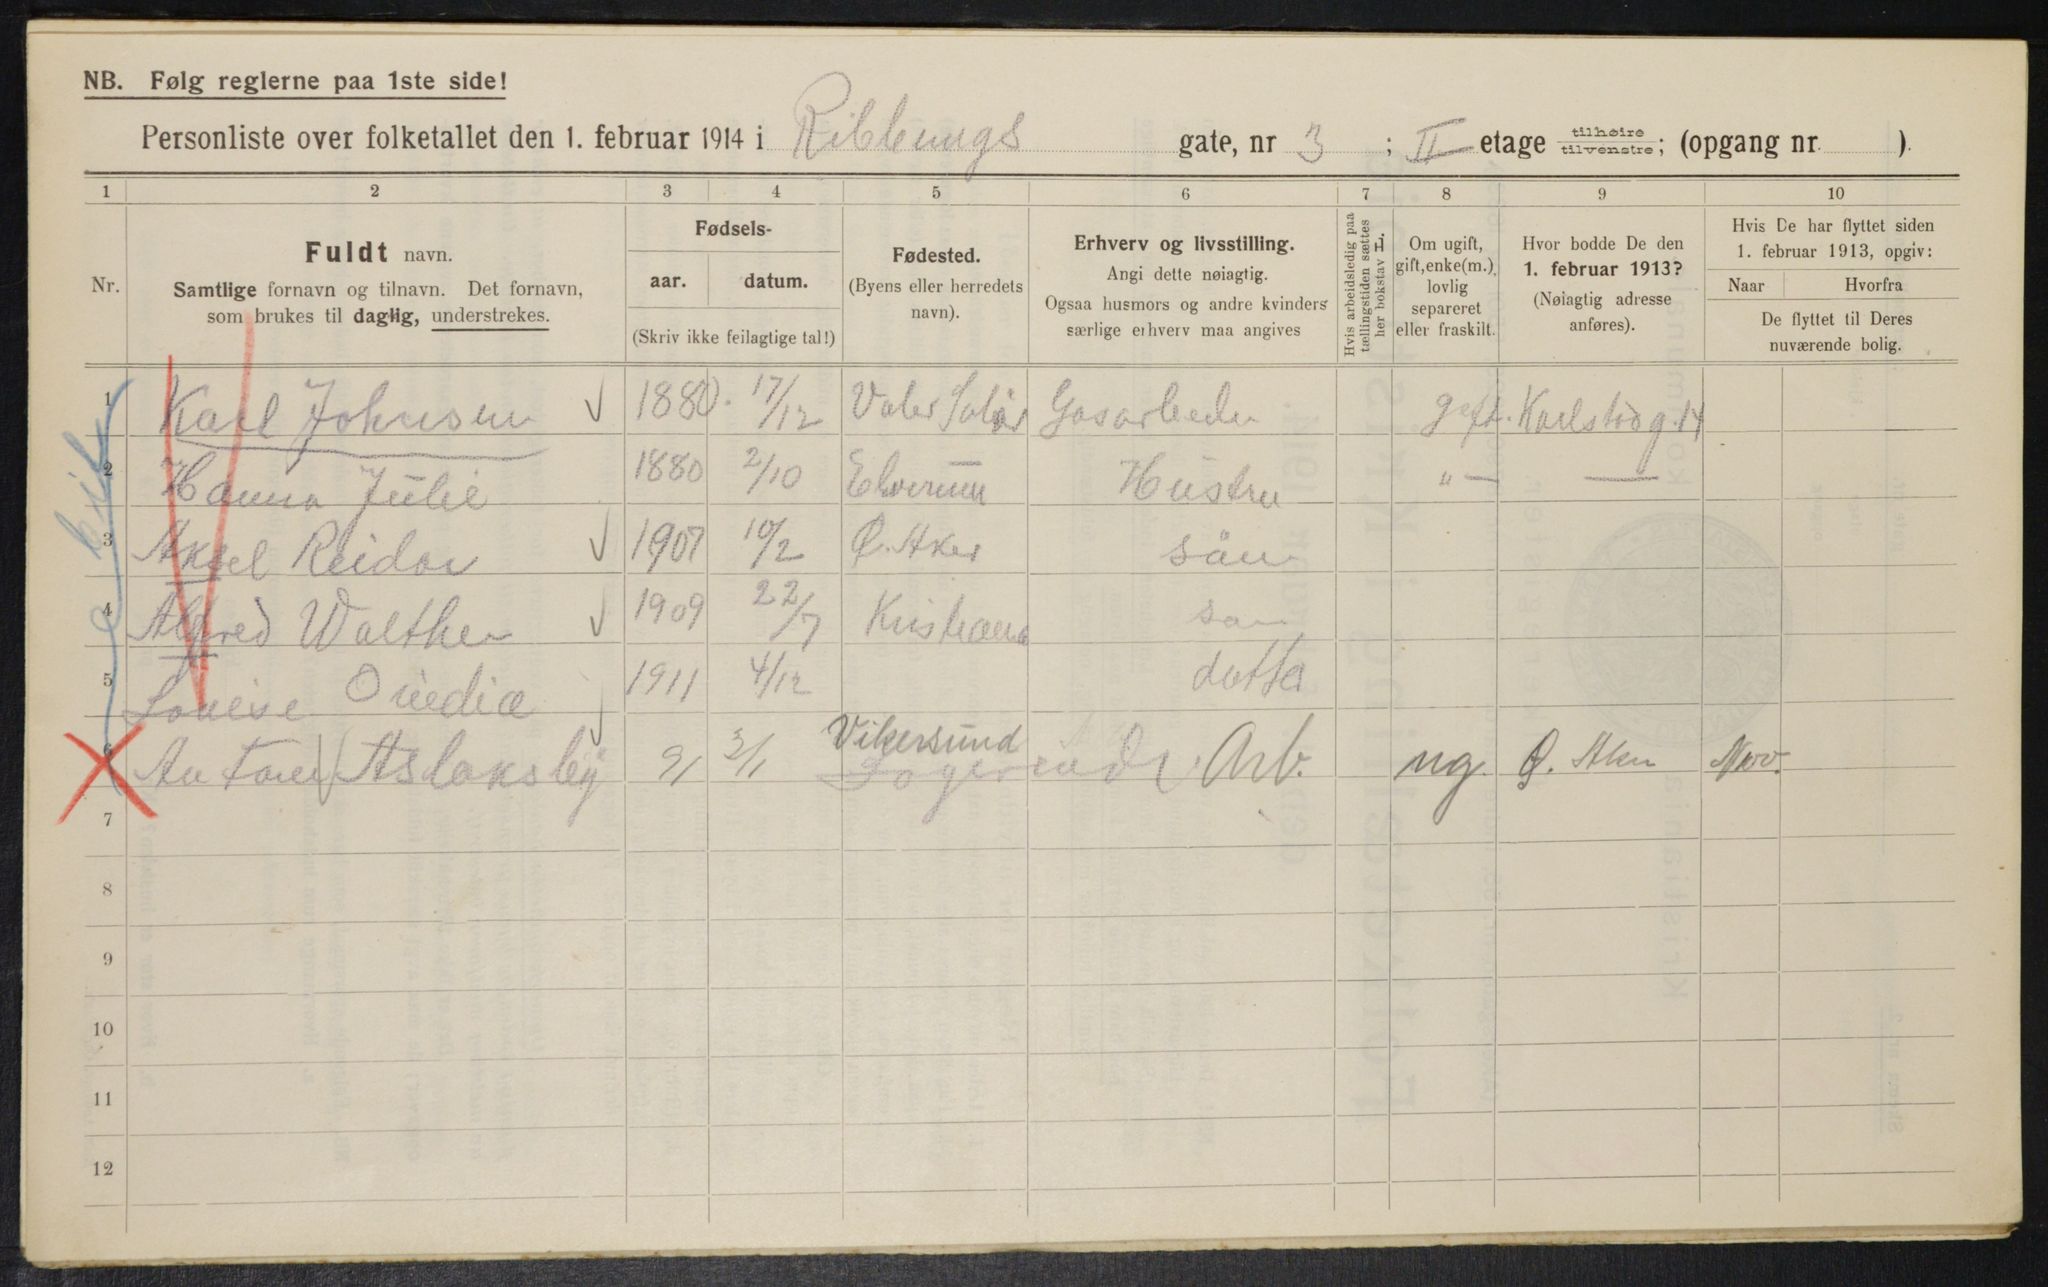 NB. Følg reglerne paa 1ste side!
Personliste over folketallet den 1. februar 1914 i Ribbungs gate, nr 3 ; II etage tilhøire/tilvenstre; (opgang nr. ).
1 2 3 4 5 6 7 8 9 10
Nr.
Fuldt navn.
Samtlige fornavn og tilnavn. Det fornavn,
som brukes til daglig, understrekes.
Fødsels-
aar. datum.
(Skriv ikke feilagtige tal!)
Fødested.
(Byens eller herredets
navn).
Erhverv og livsstilling.
Angi dette nøiagtig.
Ogsaa husmors og andre kvinders
særlige erhverv maa angives
Hvis arbeidsledig paa
tællingstiden sættes
her bokstav L.
Om ugift,
gift, enke(m.),
lovlig
separeret
eller fraskilt.
Hvor bodde De den
1. februar 1913?
(Nøiagtig adresse
anføres).
Hvis De har flyttet siden
1. februar 1913, opgiv:
Naar Hvorfra
De flyttet til Deres
nuværende bolig.
1 Karl Johnsen 1880. 17/12 Valer Solør Gasarbeider gift. Karlstadg. 14
2 Hanna Julie 1880 2/10 Elverum Hüstru "—
3 Aksel Reidar 1907 10/2 Ø. Aker sön
4 Alfred Walther 1909 22/7 Kristiania son
5 Louise Ovedia 1911 4/12 datter
6 Anton Aslaksby 91 3/1 Vikersund Logerende Arb. ug. Ø. Aker Nov.
7
8
9
10
11
12